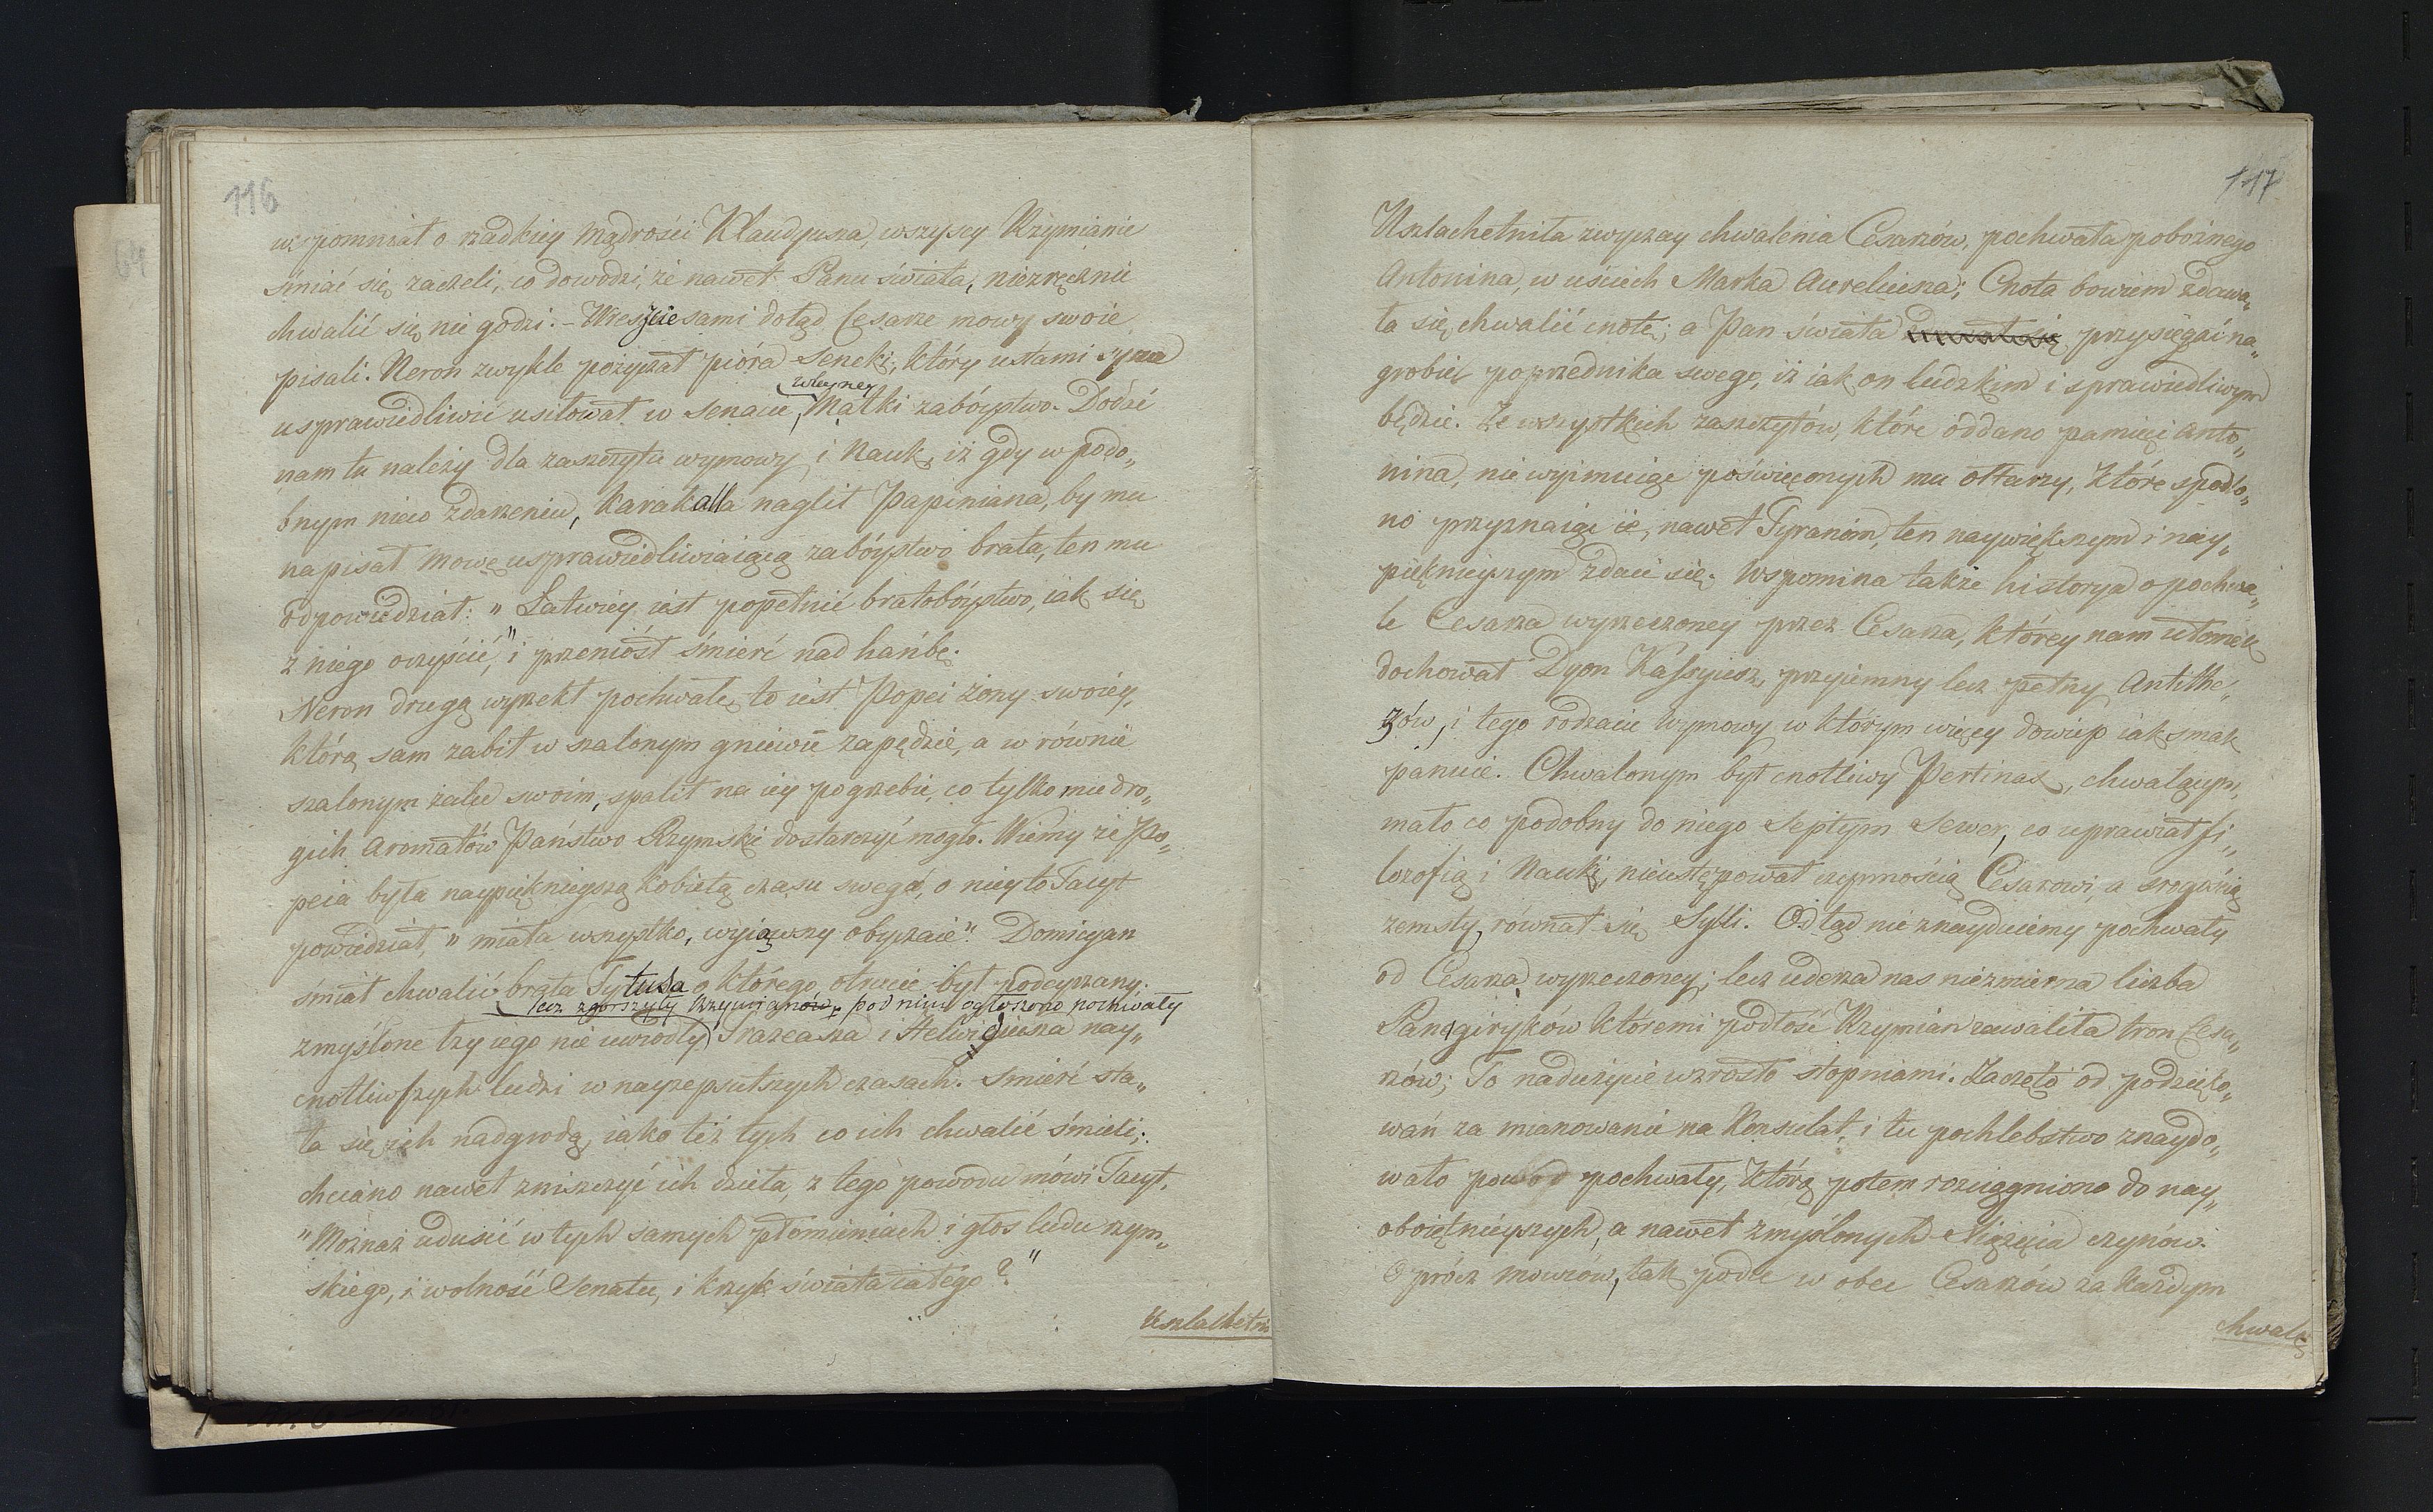 116
wspomniał o rzadkiey mądrości Klaudyusza, wszyscy Rzymianie
śmiać się zaczeli, co dowodzi, że nawet Panu świata, niezręcznie
chwalić się nie godzi. – Wreszcie sami dotąd Cesarze mowy swoie
pisali. Neron zwykle pożyczał pióra Seneki, który ustami syna
własney
usprawiedliwić usiłował w Senacie, Matki zabóystwo. Dodać
nam tu należy dla zaszczytu wymowy i Nauk, iż gdy w podo„
bnym nieco zdarzeniu, Karakalla naglił Papiniana, by mu
napisał mowę usprawiedliwiaiącą zabóystwo brata, ten mu
odpowiedział: „Łatwiey iest popełnić bratobóystwo, iak się
z niego oczyścić," i przeniósł śmierć nad hańbę.
Neron drugą wyrzekł pochwałę, to iest Popei żony swoiey,
którą sam zabił w szalonym gniewie zapędzie, a w równie
szalonym żalu swoim, spalił na iey pogrzebie, co tylko mu dro„
gich Aromatów Państwo Rzymskie dostarczyć mogło. Wiemy że Po„
peia była naypięknieyszą kobietą czasu swego, o niey to Tacyt
powiedział, „miała wszystko, wyiąwszy obyczaie". Domicyan
śmiał chwalić brata Tytusa o którego otrucie był podeyrzany.
lecz zgorszyły Rzymianów, pod nim ogłoszone pochwały
zmyślone łzy iego nie uwiodły Trazeasza i Helwidiusza nay„
cnotliwszych ludzi w nayzepsutszych czasach. Śmierć sta„
ła się ich nadgrodą, iako też tych co ich chwalić śmieli;
chciano nawet zniszczyć ich dzieła, z tego powodu mówi Tacyt.
„Możnaż udusić w tych samych płomieniach i głos ludu rzym„
skiego, i wolność Senatu, i krzyk świata całego?"
Uszlachetni
117
Uszlachetniła zwyczay chwalenia Cesarzów, pochwała pobożnego
Antonina, w uściech Marka Aureliusza; Cnota bowiem zdawa„
ła się chwalić cnotę; a Pan świata przysięgać na
grobie poprzednika swego, iż iak on ludzkim i sprawiedliwym
będzie. Ze wszystkich zaszczytów, które oddano pamięci Anto„
nina, nie wyimuiąc poświęconych mu ołtarzy, które spodlo„
no przyznaiąc ie, nawet Tyranom, ten naywiększym i nay„
pięknieyszym zdaie się. Wspomina także historya o pochwa„
le Cesarza wyrzeczoney przez Cesarza, którey nam ułomek
dochował Dyon Kassyusz, przyiemny lecz pełny Antithe„
zów, i tego rodzaiu wymowy w którym więcey dowcip iak smak
panuie. Chwalonym był cnotliwy Pertinax, chwalącym,
mało co podobny do niego Septym Sewer, co uprawiał fi„
lozofią i Nauki, nieustępował czynnością Cesarowi, a srogością
zemsty, równał się Sylli. Odtąd nie znayduiemy pochwały
od Cesarza wyrzeczoney; lecz uderza nas niezmierna liczba
Panegiryków któremi podłość Rzymian zawaliła tron Cesa„
rzów; To nadużycie wzrosło stopniami. Zaczęto od podzięko„
wań za mianowanie na Konsulat, i tu pochlebstwo znaydo„
wało powód pochwały, którą potem rozciągniono do nay„
oboiętnieyszych, a nawet zmyślonych Xiążęcia czynów.
Oprócz mowców, tak podle w obec Cesarzów za każdym
chwalę